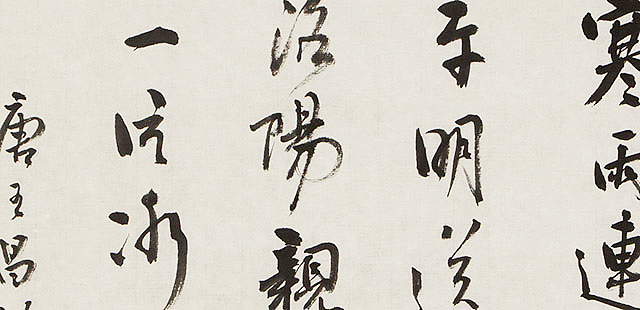 寒雨連
平明送
洛陽親
一片冰
唐王昌